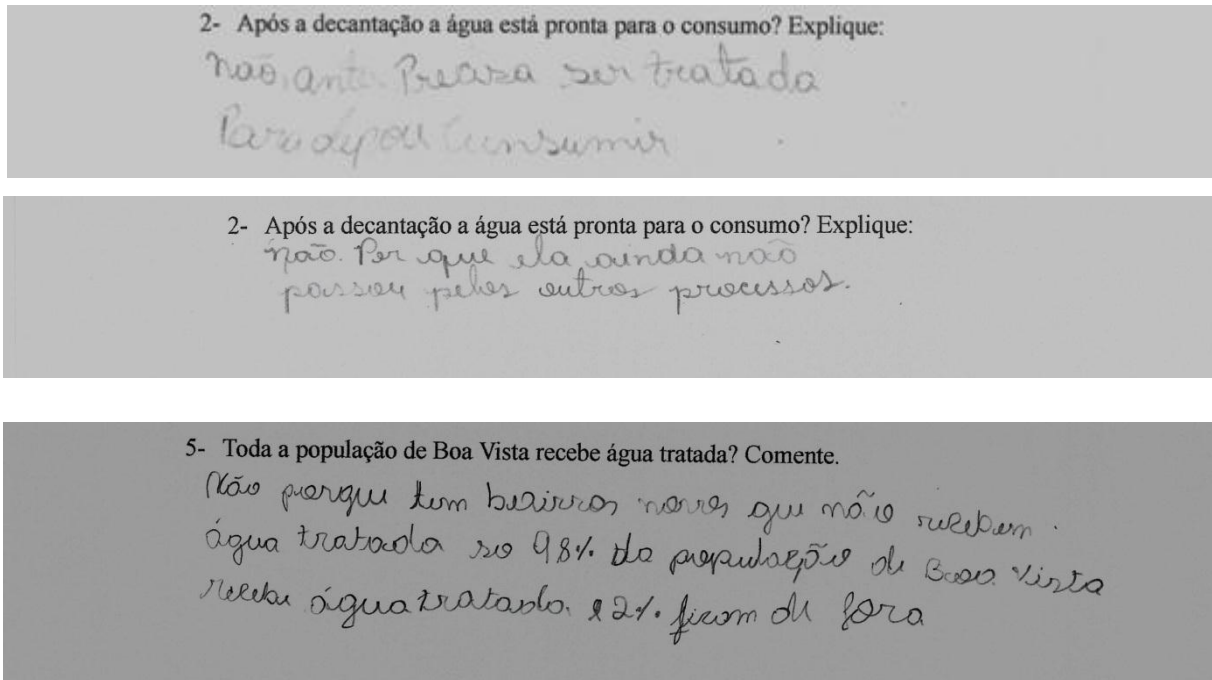 2- Após a decantação a água está pronta para o consumo? Explique:
não, ante Precisa ser tratada
Para depou Consumir
2- Após a decantação a água está pronta para o consumo? Explique:
não. Por que ela ainda não
passou pelos outros processos.
5- Toda a população de Boa Vista recebe água tratada? Comente.
Não porque tem bairros novos que não recebem.
água tratada so 98% da população de Boa Vista
recebe água tratada. e 2% ficam de fora